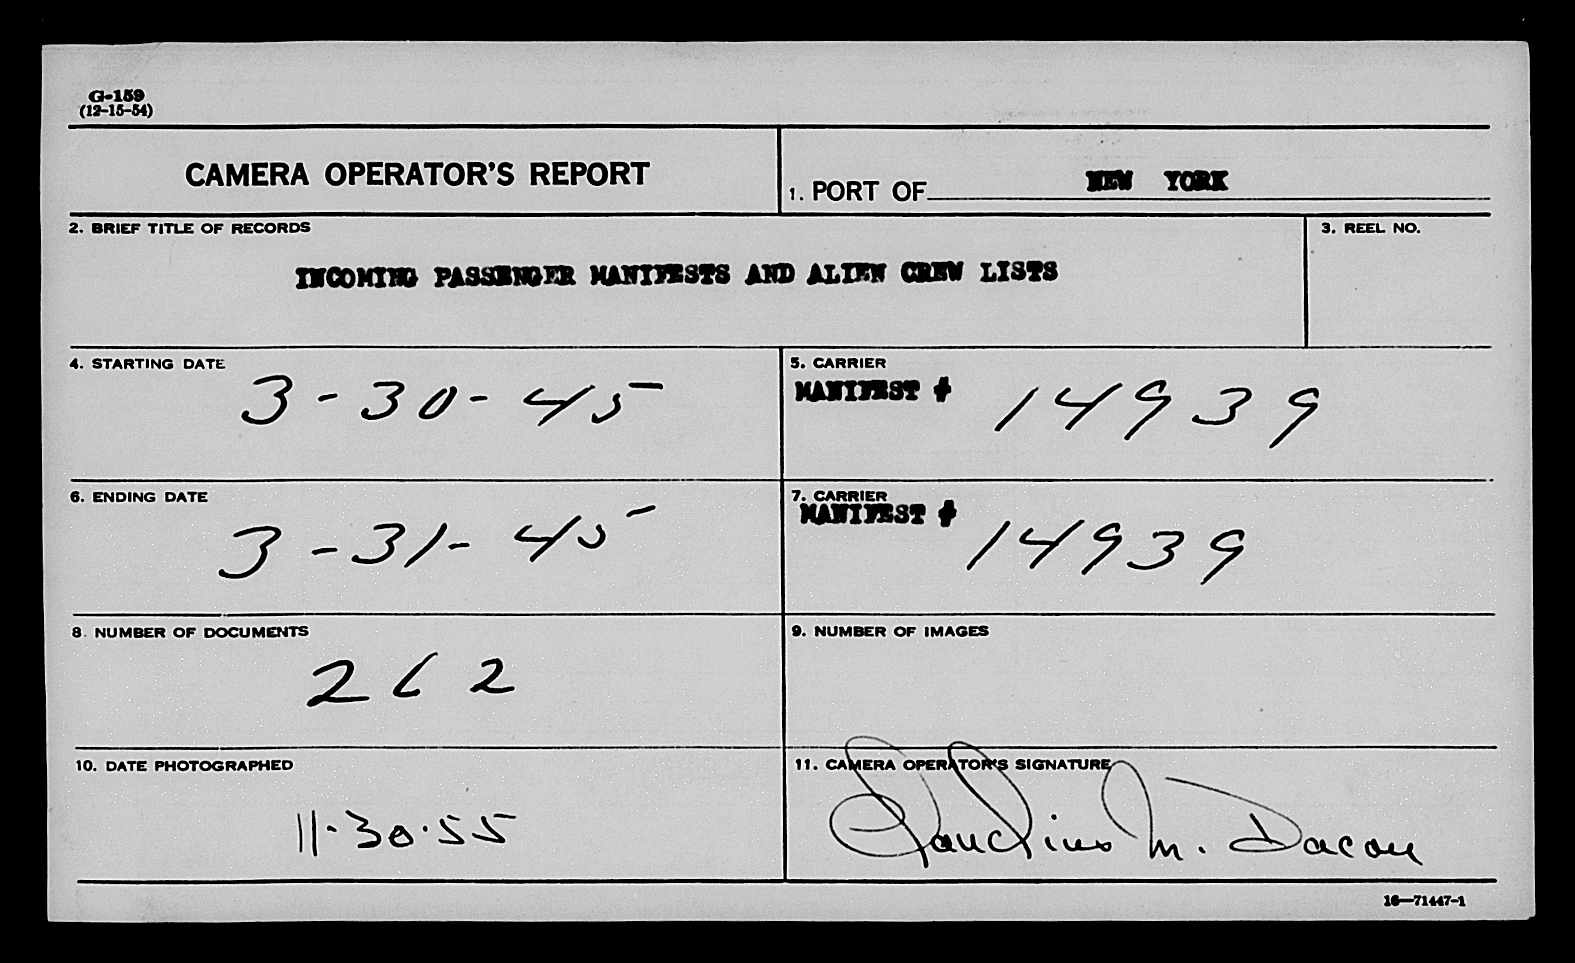 G-159
(12-15-54)
CAMERA OPERATOR'S REPORT
1. PORT OF NEW YORK
2. BRIEF TITLE OF RECORDS
INCOMING PASSENGER MANIFESTS AND ALIEN CREW LISTS
3. REEL NO.
4. STARTING DATE
3-30-45
5. CARRIER
MANIFEST # 14939
6. ENDING DATE
3-31-45
7. CARRIER
MANIFEST # 14939
8. NUMBER OF DOCUMENTS
262
9. NUMBER OF IMAGES
10. DATE PHOTOGRAPHED
11-30-55
11. CAMERA OPERATOR'S SIGNATURE
Claudius M. Dacon
16—71447-1